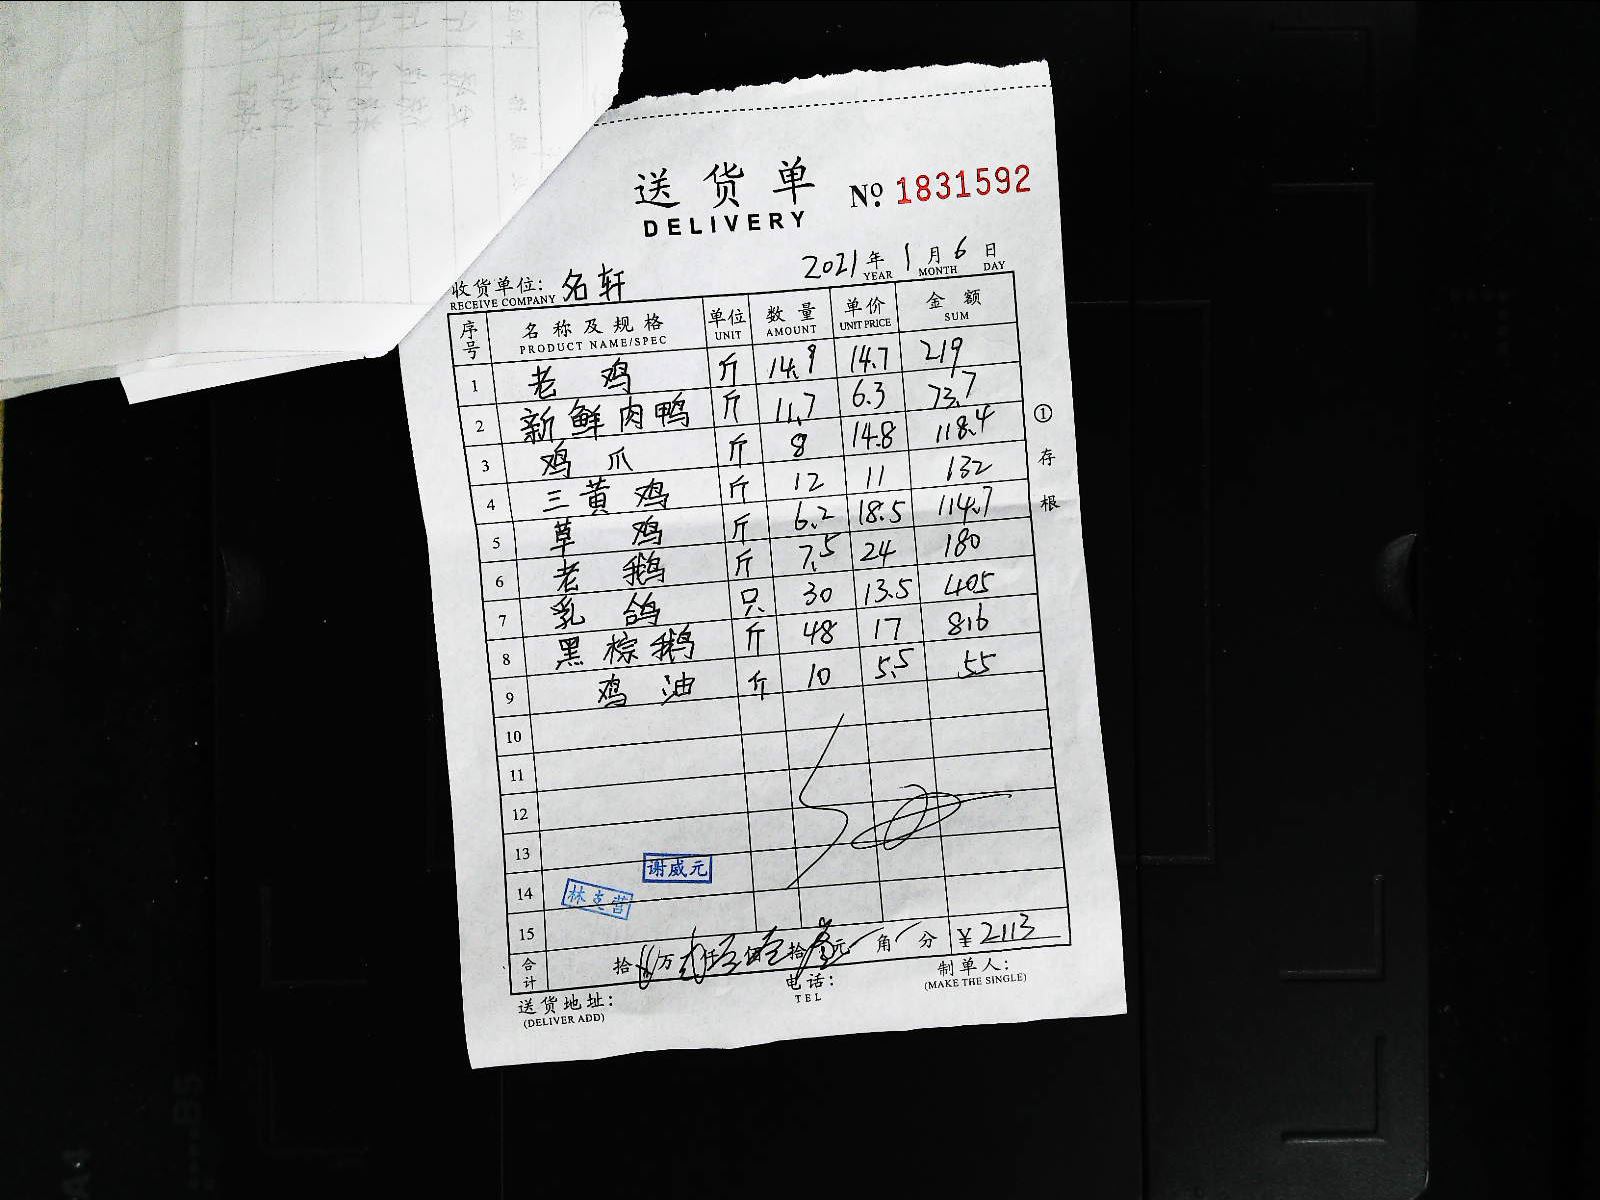 送货单 № 1831592
DELIVERY
2021年1月6日
YEAR MONTH DAY
收货单位: 名轩
RECEIVE COMPANY
序号 名称及规格 单位 数量 单价 金额
PRODUCT NAME/SPEC UNIT AMOUNT UNIT PRICE SUM
1 老鸡 斤 14.9 14.7 219
2 新鲜肉鸭 斤 11.7 6.3 73.7
3 鸡爪 斤 8 14.8 118.4
4 三黄鸡 斤 12 11 132
5 草鸡 斤 6.2 18.5 114.7
6 老鹅 斤 7.5 24 180
7 乳鸽 只 30 13.5 405
8 黑棕鹅 斤 48 17 816
9 鸡油 斤 10 5.5 55
10
11
12
13
14
15
谢威元
林克营
合计 拾 万 仟 佰 拾 元 角 分 ¥2113
送货地址: 电话: 制单人:
(DELIVER ADD) TEL (MAKE THE SINGLE)
①存根